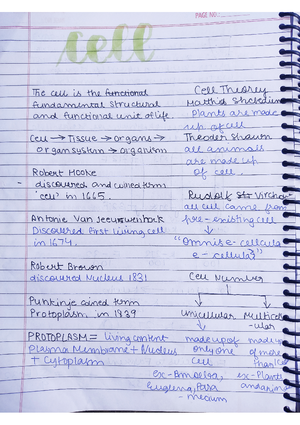 PAGE NO:
cell
The cell is the functional
fundamental structural
and functional unit of life.
Cell → Tissue → organs →
organ system → organism
Robert Hooke
discovered and coined term
'cell' in 1665.
Antonie Van Leeuwenhock
Discovered first living cell
in 1674.
Robert Brown
discovered Nucleus 1831
Purkinje coined term
Protoplasm in 1839
PROTOPLASM = living content
Plasma Membrane + Nucleus
+ Cytoplasm
Cell Theorey
Plants are made
up of cell
Theoder
all animals
are made up
of cell.
Rudolf Virchow
all cell came from
pre-existing cell
"Omnis e-cellula
e-cellula"
Cell Number
Unicellular
made up of
only one
cell
ex- Amoeba,
Euglena, Para
-mecium
Multicell
-ular
made up
of more
than cell
ex- Plants